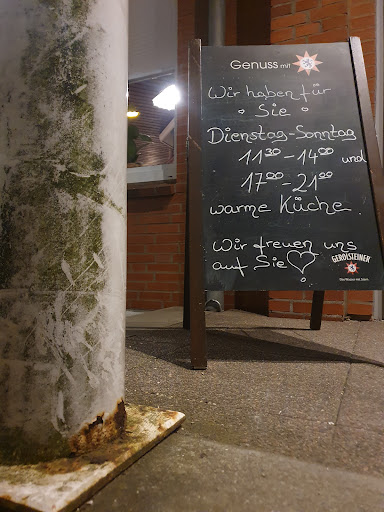 Genuss mit
Wir haben für
Sie
Dienstag-Sonntag
11³⁰-14⁰⁰ und
17⁰⁰-21⁰⁰
warme Küche.
Wir freuen uns
auf Sie ♡
GEROLSTEINER